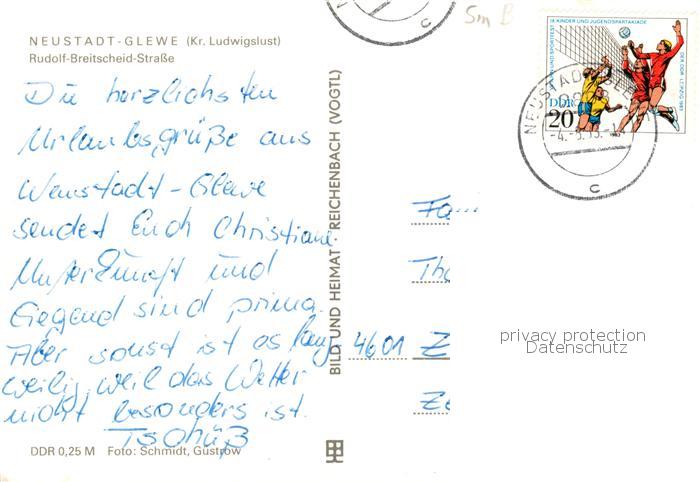 Sm B
NEUSTADT-GLEWE (Kr. Ludwigslust)
Rudolf-Breitscheid-Straße
Die herzlichsten
Urlaubsgrüße aus
Neustadt-Glewe
sendet Euch Christiane
Unterkunft und
Gegend sind prima.
Aber sonst ist es lang
weilig, weil das Wetter
nicht besonders ist.
Tschüß
DDR 0,25 M Foto: Schmidt, Güstrow
BILD UND HEIMAT · REICHENBACH (VOGTL)
IX KINDER UND JUGENDSPARTAKIADE
DER DDR LEIPZIG 1983
UND SPORTFEST
DDR
20
1983
NEUSTADT
c
c
Fa
Tho
4601 Z
Ze
privacy protection
Datenschutz